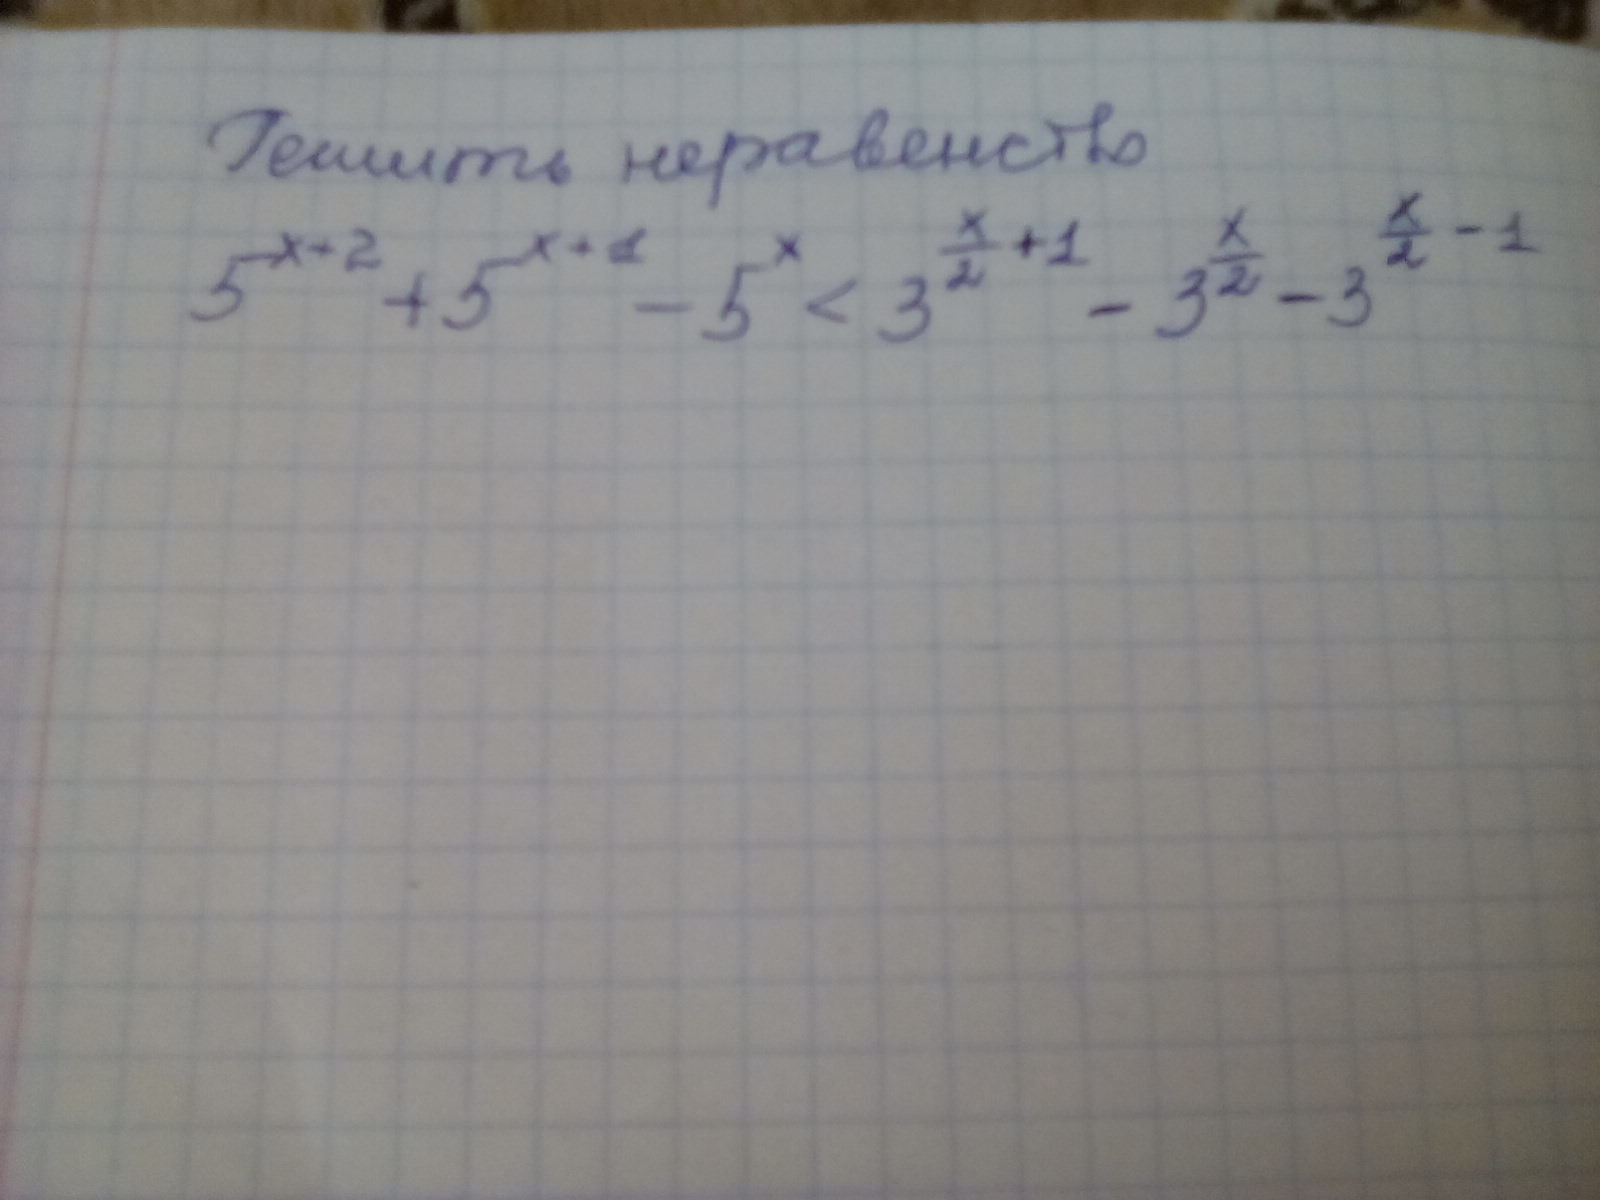 Решить неравенство
5^{x+2} + 5^{x+1} - 5^{x} < 3^{\frac{x}{2}+1} - 3^{\frac{x}{2}} - 3^{\frac{x}{2}-1}